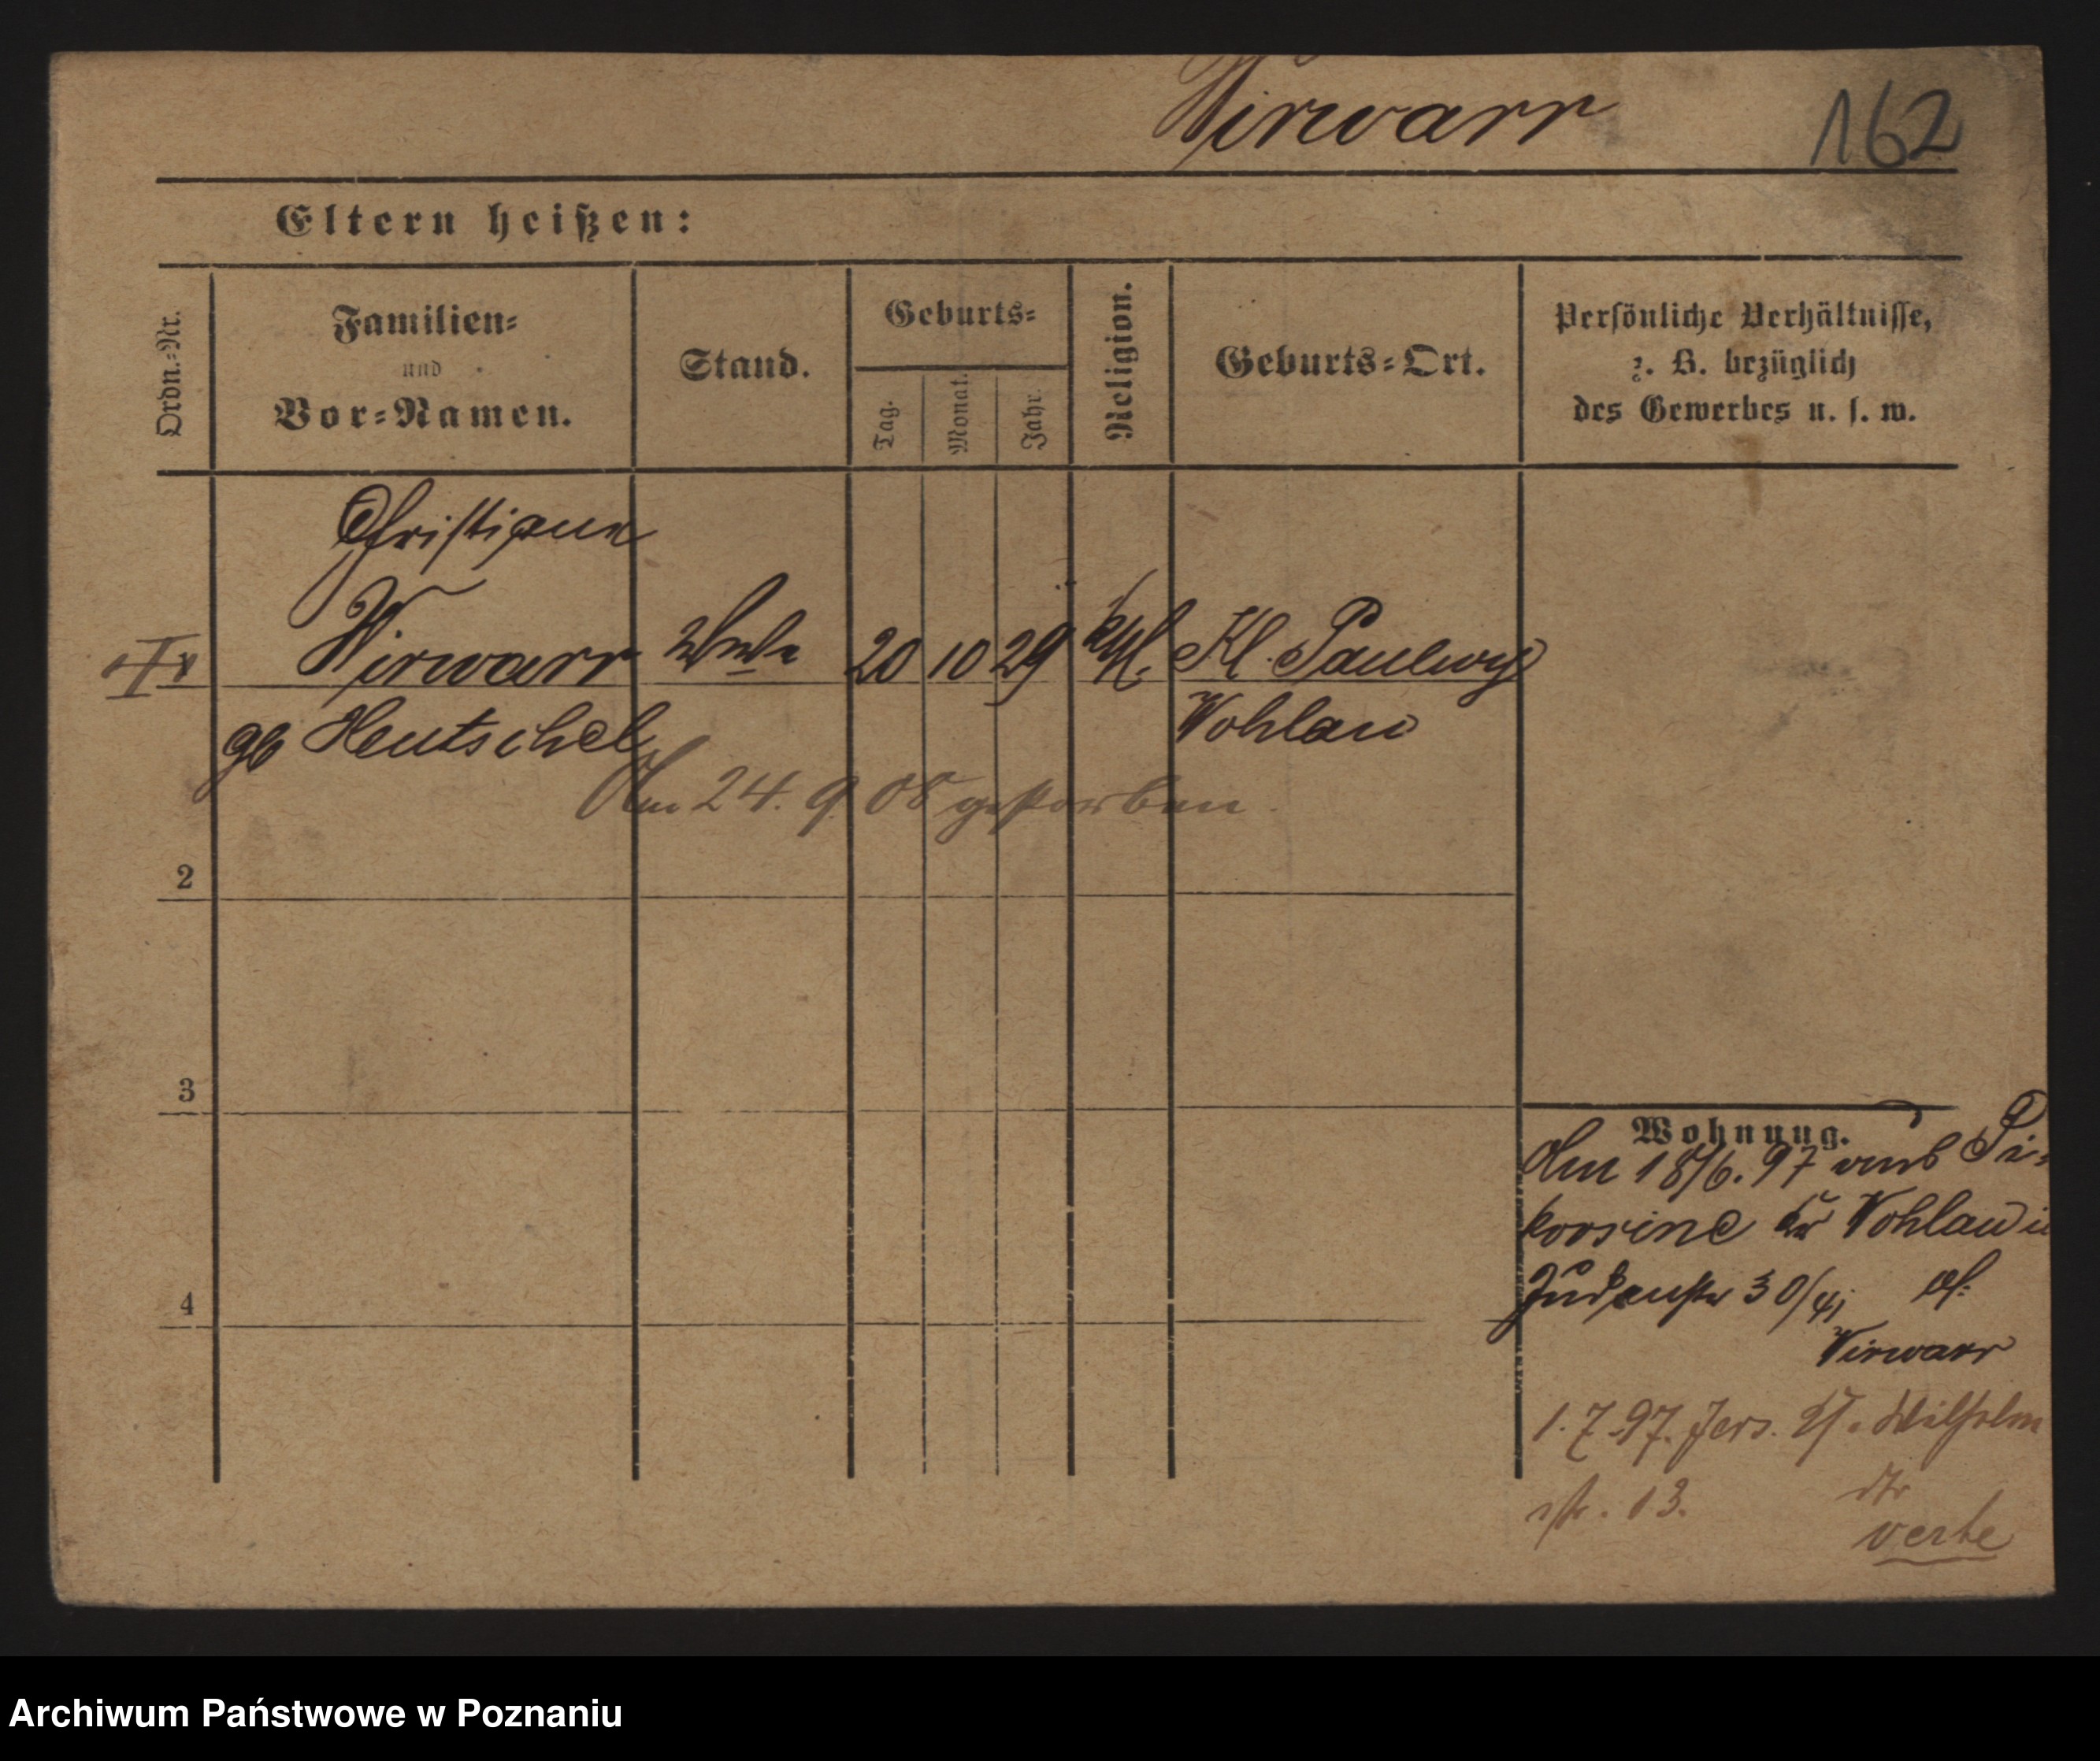 Wirwarr 162
Eltern heißen:
Ordn.-Nr.
Familien-
und
Vor-Namen.
Stand.
Geburts-
Tag.
Monat.
Jahr.
Religion.
Geburts-Ort.
Persönliche Verhältnisse,
z. B. bezüglich
des Gewerbes u. s. w.
Christiane
Wirwarr Wwe 20 10 29 kath. Kl. Paulwy
gb Hentschel Wohlau
Am 24. 9. 08 gestorben.
2
3
4
Wohnung.
Am 18/6. 97 von Pis-
korsine Kr Wohlau
Judenstr 30/41
Wirwarr
1. 7. 97. Jers. Wilhelm
str. 13.
verte
Archiwum Państwowe w Poznaniu